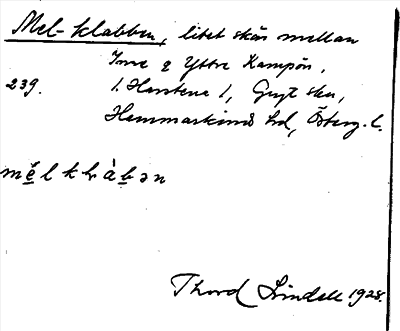 Mel-klabben, litet skär mellan
Inre o Yttre Kampön,
239. 1. Harstena 1, Gryt skn,
Hammarkinds hd, Österg. l.
Thord Lindell 1928.